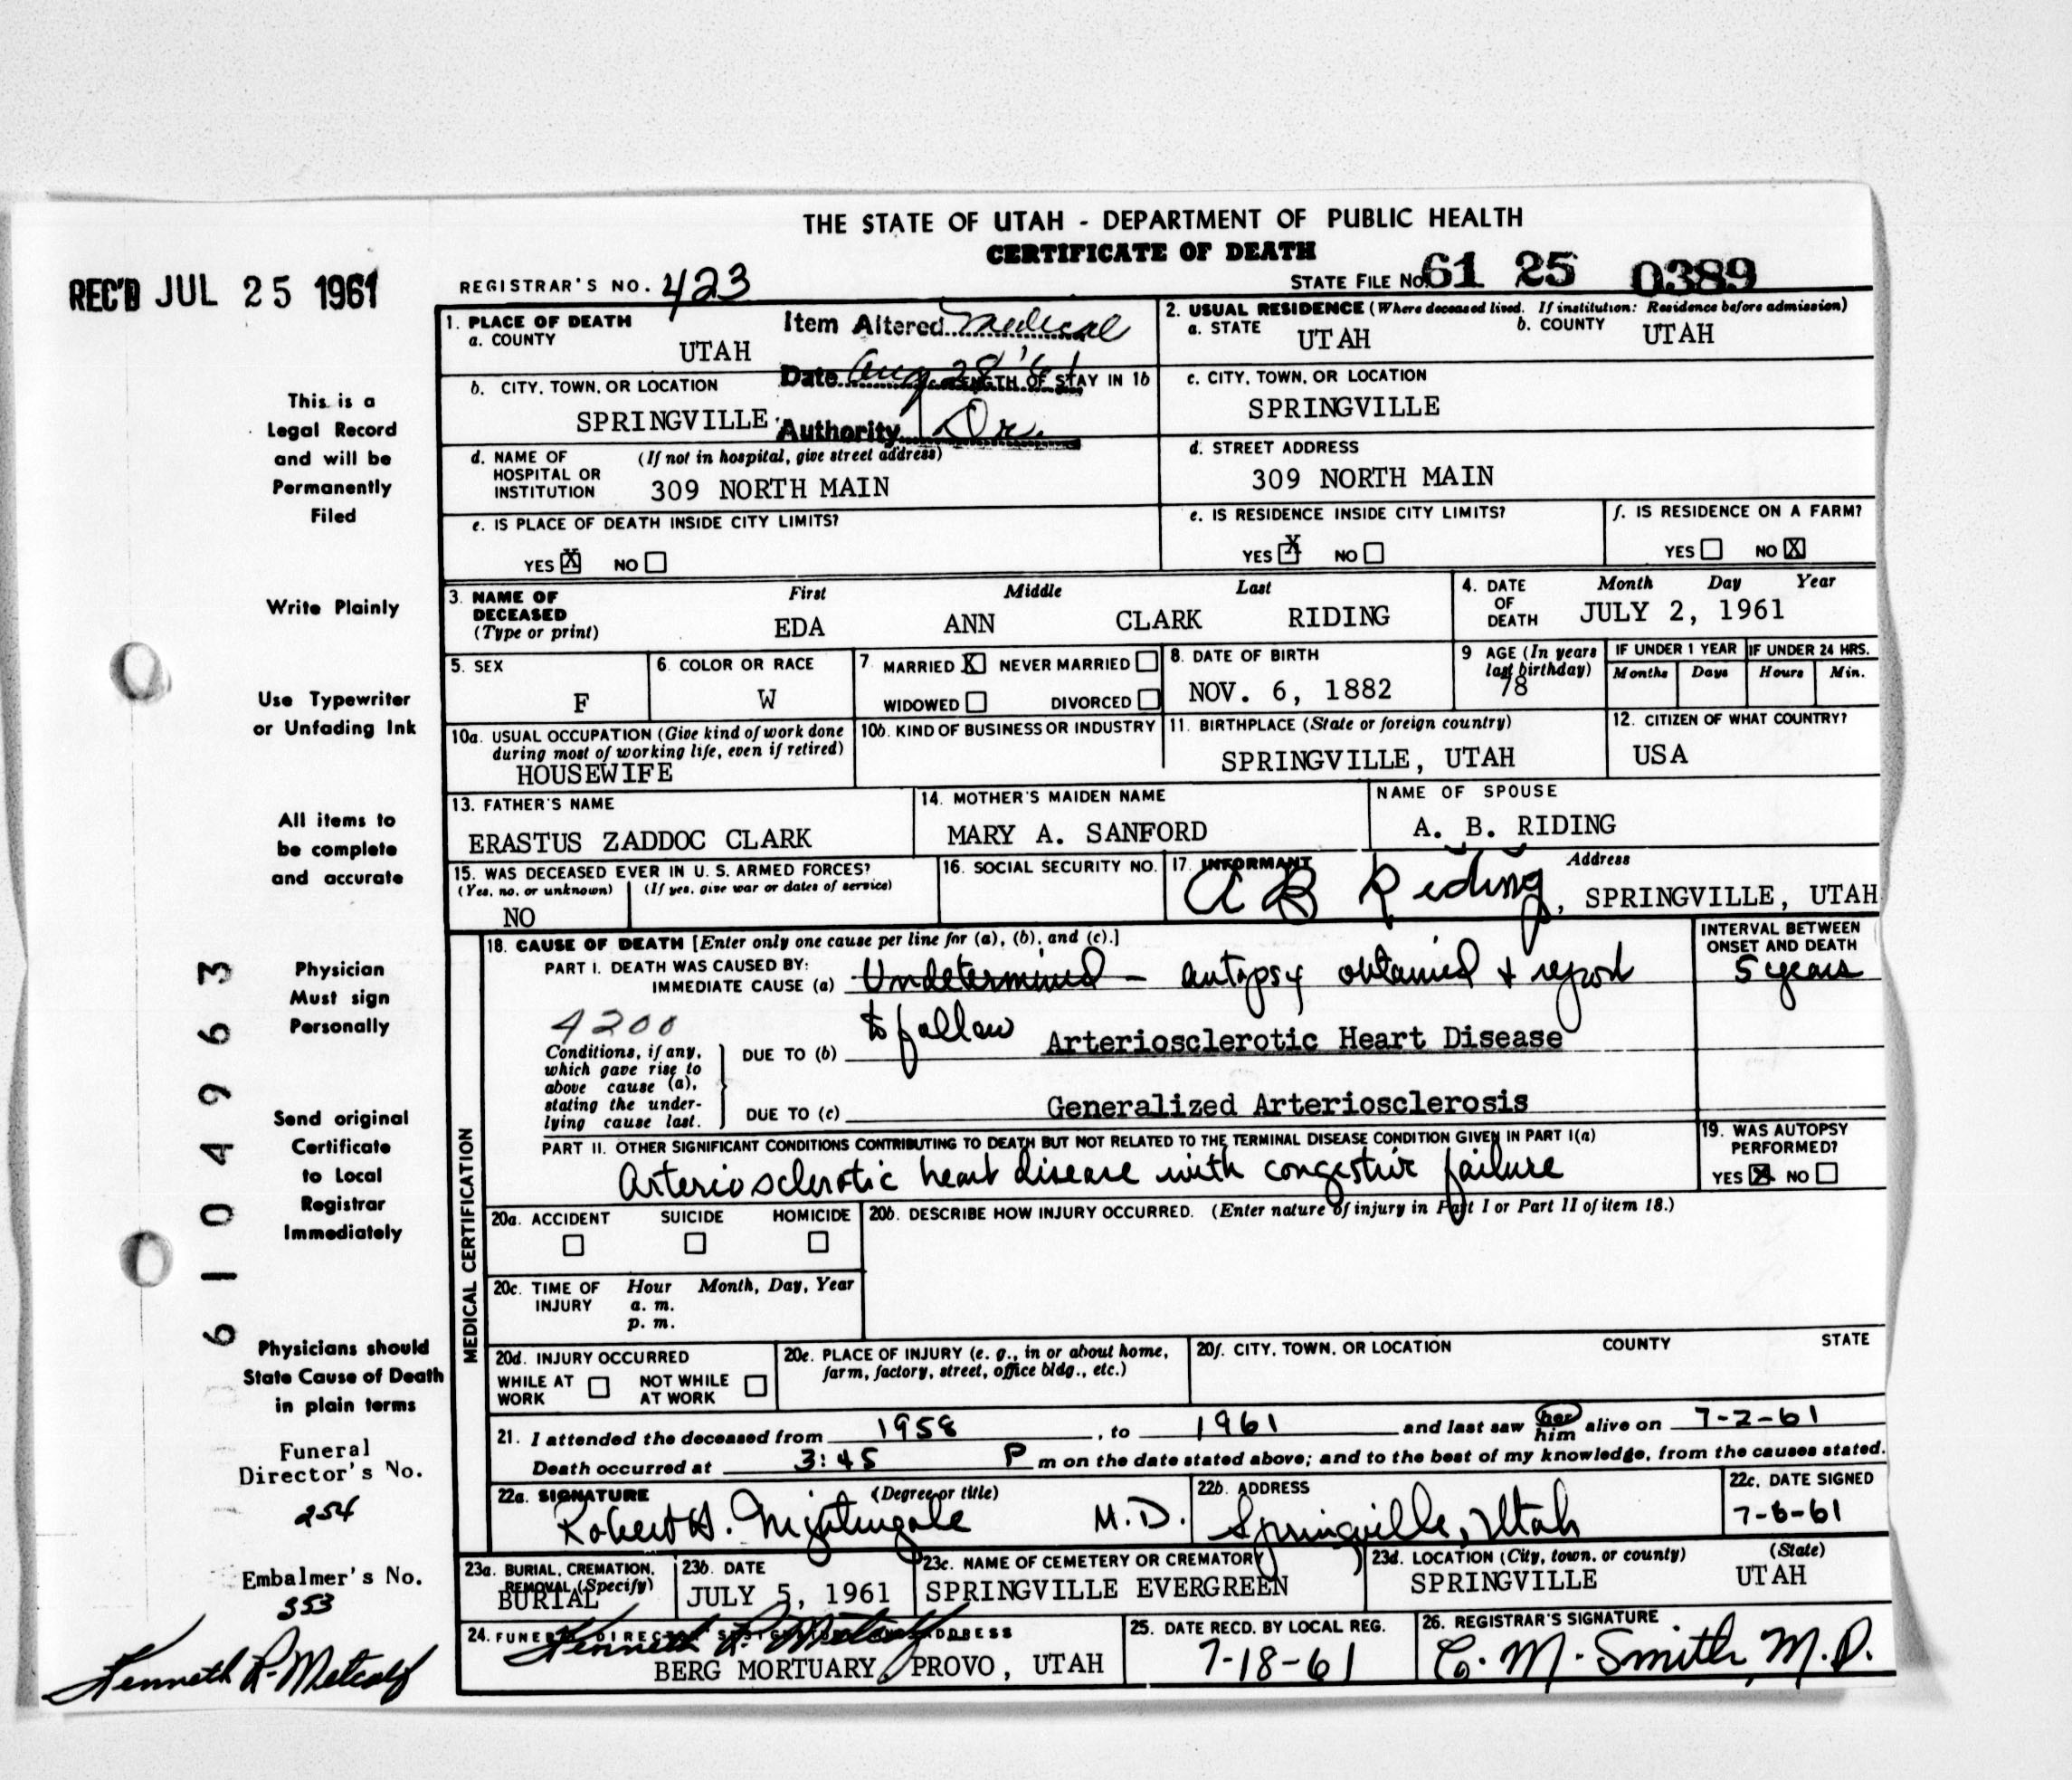 THE STATE OF UTAH - DEPARTMENT OF PUBLIC HEALTH
CERTIFICATE OF DEATH
REC'D JUL 25 1961
REGISTRAR'S NO. 423
STATE FILE NO. 61 25 0389
1. PLACE OF DEATH
a. COUNTY
UTAH
Item Altered Medical
Date Aug 28 '61
Authority Dr.
2. USUAL RESIDENCE (Where deceased lived. If institution: Residence before admission)
a. STATE UTAH b. COUNTY UTAH
b. CITY, TOWN, OR LOCATION
SPRINGVILLE
LENGTH OF STAY IN 1b
c. CITY, TOWN, OR LOCATION
SPRINGVILLE
d. NAME OF HOSPITAL OR INSTITUTION (If not in hospital, give street address)
309 NORTH MAIN
d. STREET ADDRESS
309 NORTH MAIN
e. IS PLACE OF DEATH INSIDE CITY LIMITS?
YES X NO
e. IS RESIDENCE INSIDE CITY LIMITS?
YES X NO
f. IS RESIDENCE ON A FARM?
YES NO X
3. NAME OF DECEASED (Type or print)
First Middle Last
EDA ANN CLARK RIDING
4. DATE OF DEATH Month Day Year
JULY 2, 1961
5. SEX
F
6. COLOR OR RACE
W
7. MARRIED X NEVER MARRIED
WIDOWED DIVORCED
8. DATE OF BIRTH
NOV. 6, 1882
9 AGE (In years last birthday)
78
IF UNDER 1 YEAR IF UNDER 24 HRS.
Months Days Hours Min.
10a. USUAL OCCUPATION (Give kind of work done during most of working life, even if retired)
HOUSEWIFE
10b. KIND OF BUSINESS OR INDUSTRY
11. BIRTHPLACE (State or foreign country)
SPRINGVILLE, UTAH
12. CITIZEN OF WHAT COUNTRY?
USA
13. FATHER'S NAME
ERASTUS ZADDOC CLARK
14. MOTHER'S MAIDEN NAME
MARY A. SANFORD
NAME OF SPOUSE
A. B. RIDING
15. WAS DECEASED EVER IN U. S. ARMED FORCES?
(Yes, no, or unknown) (If yes, give war or dates of service)
NO
16. SOCIAL SECURITY NO.
17. INFORMANT Address
A B Riding, SPRINGVILLE, UTAH
MEDICAL CERTIFICATION
18. CAUSE OF DEATH [Enter only one cause per line for (a), (b), and (c).]
INTERVAL BETWEEN ONSET AND DEATH
5 years
PART I. DEATH WAS CAUSED BY:
IMMEDIATE CAUSE (a) Undetermined - autopsy obtained & report
to follow
4200
Conditions, if any, which gave rise to above cause (a), stating the underlying cause last.
DUE TO (b) Arteriosclerotic Heart Disease
DUE TO (c) Generalized Arteriosclerosis
PART II. OTHER SIGNIFICANT CONDITIONS CONTRIBUTING TO DEATH BUT NOT RELATED TO THE TERMINAL DISEASE CONDITION GIVEN IN PART I(a)
Arteriosclerotic heart disease with congestive failure
19. WAS AUTOPSY PERFORMED?
YES X NO
20a. ACCIDENT SUICIDE HOMICIDE
20b. DESCRIBE HOW INJURY OCCURRED. (Enter nature of injury in Part I or Part II of item 18.)
20c. TIME OF INJURY Hour Month, Day, Year
a. m.
p. m.
20d. INJURY OCCURRED
WHILE AT WORK NOT WHILE AT WORK
20e. PLACE OF INJURY (e. g., in or about home, farm, factory, street, office bldg., etc.)
20f. CITY, TOWN, OR LOCATION COUNTY STATE
21. I attended the deceased from 1958, to 1961 and last saw her him alive on 7-2-61
Death occurred at 3:45 P m on the date stated above; and to the best of my knowledge, from the causes stated.
22a. SIGNATURE (Degree or title)
Robert H. Nightingale M.D.
22b. ADDRESS
Springville, Utah
22c. DATE SIGNED
7-6-61
23a. BURIAL, CREMATION, REMOVAL (Specify)
BURIAL
23b. DATE
JULY 5, 1961
23c. NAME OF CEMETERY OR CREMATORY
SPRINGVILLE EVERGREEN
23d. LOCATION (City, town, or county) (State)
SPRINGVILLE UTAH
24. FUNERAL DIRECTOR'S SIGNATURE ADDRESS
Kenneth R. Metcalf
BERG MORTUARY, PROVO, UTAH
25. DATE RECD. BY LOCAL REG.
7-18-61
26. REGISTRAR'S SIGNATURE
C. M. Smith, M.D.
This is a
Legal Record
and will be
Permanently
Filed
Write Plainly
Use Typewriter
or Unfading Ink
All items to
be complete
and accurate
Physician
Must sign
Personally
Send original
Certificate
to Local
Registrar
Immediately
Physicians should
State Cause of Death
in plain terms
Funeral
Director's No.
254
Embalmer's No.
353
Kenneth R. Metcalf
6104963